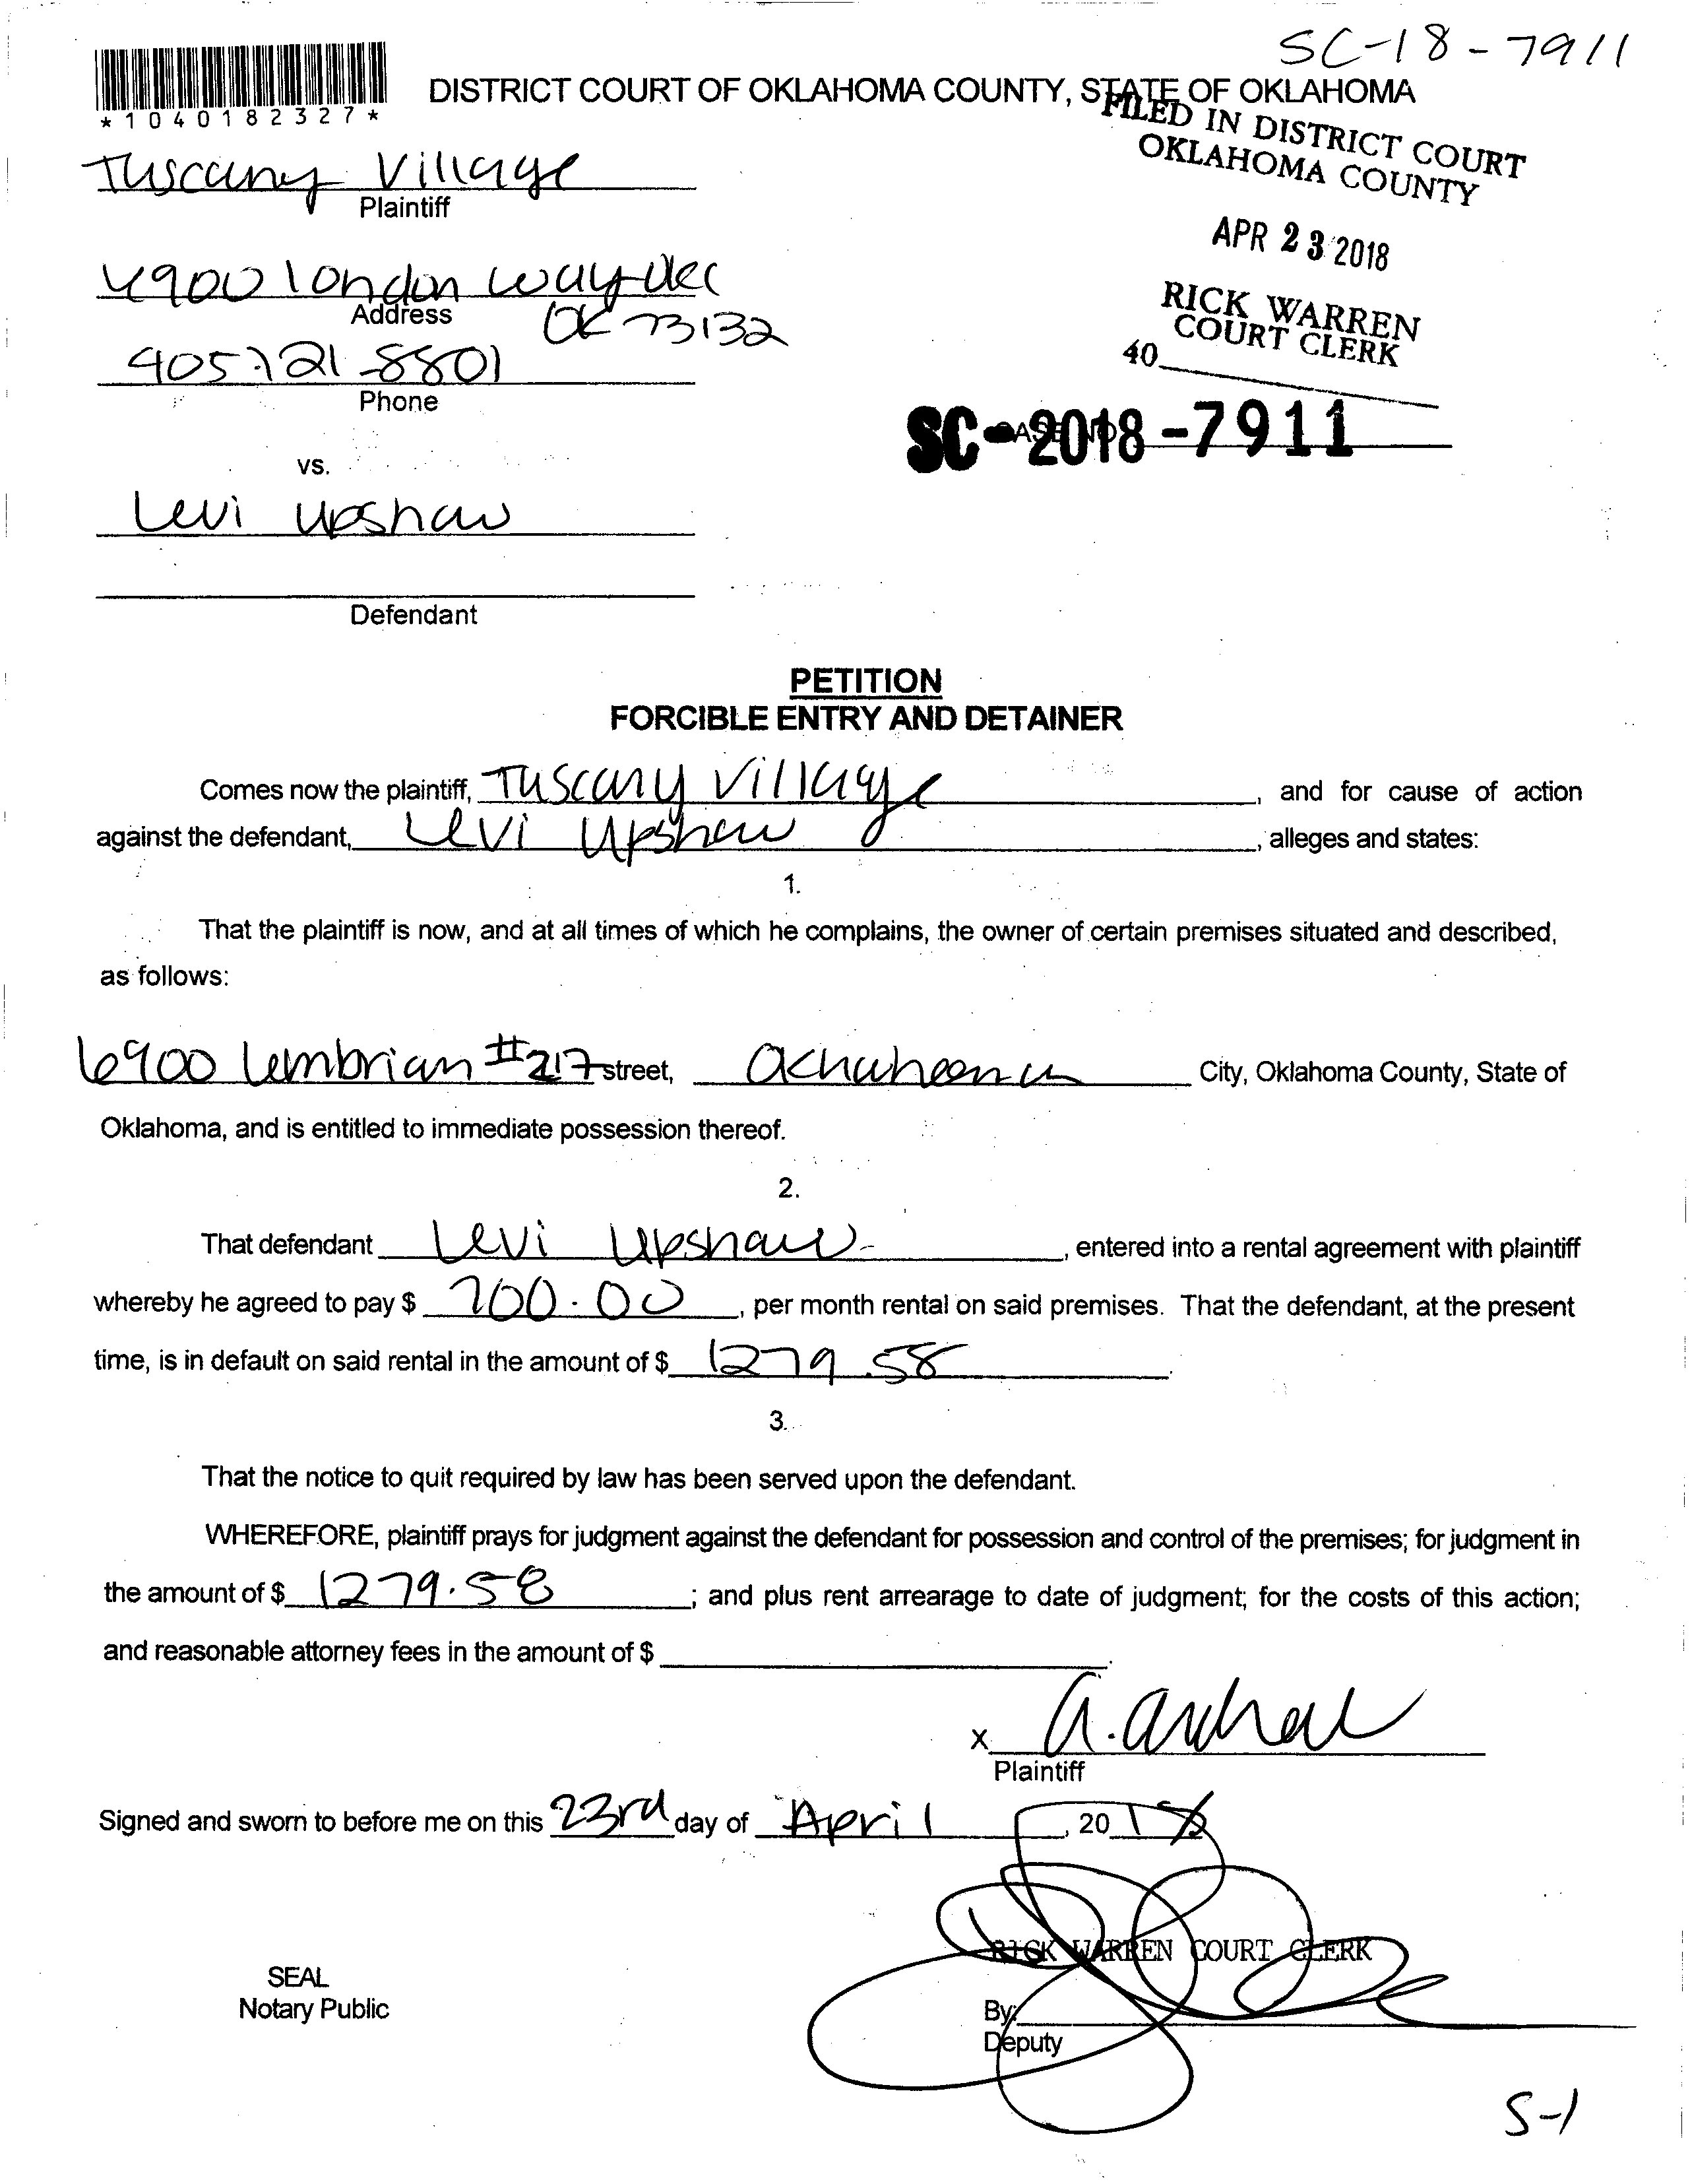 SC-18-7911
*1040182327*
DISTRICT COURT OF OKLAHOMA COUNTY, STATE OF OKLAHOMA
FILED IN DISTRICT COURT
OKLAHOMA COUNTY
Tuscany Village
Plaintiff
APR 23 2018
RICK WARREN
COURT CLERK
40
4900 london way
Address
OK 73132
405-721-8801
Phone
SC-2018-7911
CASE NO.
vs.
Levi Upshaw
Defendant
PETITION
FORCIBLE ENTRY AND DETAINER
Comes now the plaintiff, Tuscany Village, and for cause of action
against the defendant, Levi Upshaw, alleges and states:
1.
That the plaintiff is now, and at all times of which he complains, the owner of certain premises situated and described,
as follows:
6900 #217 street, City, Oklahoma County, State of
Oklahoma, and is entitled to immediate possession thereof.
2.
That defendant Levi Upshaw, entered into a rental agreement with plaintiff
whereby he agreed to pay $ 700.00, per month rental on said premises. That the defendant, at the present
time, is in default on said rental in the amount of $ 1279.58.
3.
That the notice to quit required by law has been served upon the defendant.
WHEREFORE, plaintiff prays for judgment against the defendant for possession and control of the premises; for judgment in
the amount of $ 1279.58; and plus rent arrearage to date of judgment; for the costs of this action;
and reasonable attorney fees in the amount of $ .
X
Plaintiff
Signed and sworn to before me on this 23rd day of April, 2018
RICK WARREN COURT CLERK
SEAL
Notary Public
By:
Deputy
S-1